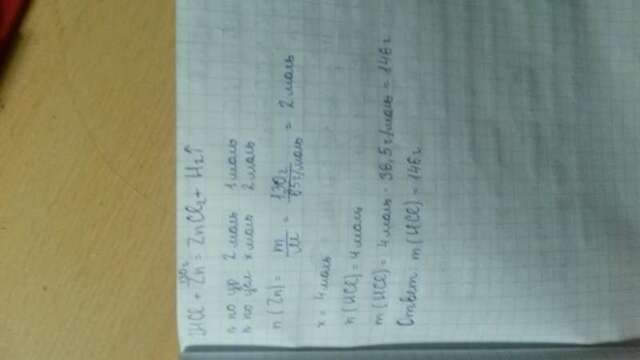 130г
2HCl + Zn = ZnCl₂ + H₂↑
n по ур 2 моль 1 моль
n по усл x моль 2 моль
n(Zn) = m/M = 130г/65г/моль = 2 моль
x = 4 моль
n(HCl) = 4 моль
m(HCl) = 4 моль · 36,5 г/моль = 146 г
Ответ: m(HCl) = 146 г